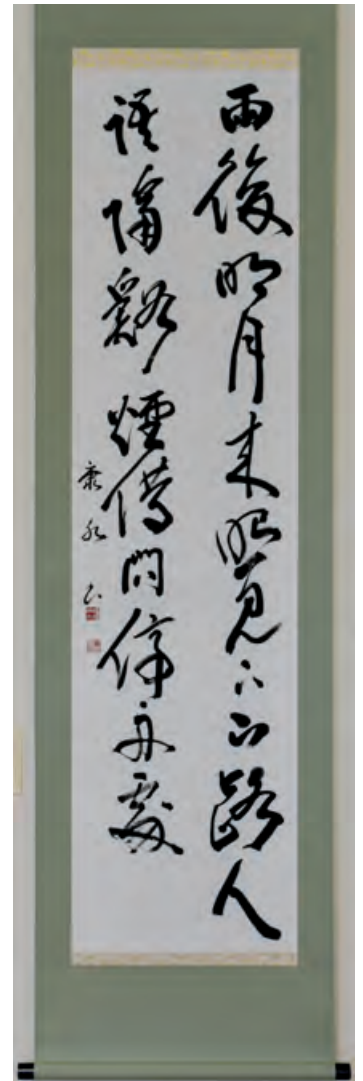 雨後明月来照見下山路人
語隔谿煙借問停舟處